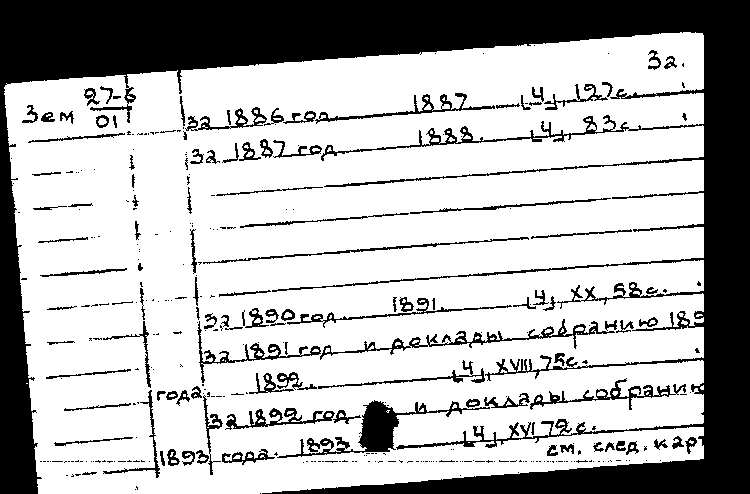 3а.
Зем 27-6/01
за 1886 год 1887 [4], 127с.
за 1887 год 1888. [4], 83с.
за 1890 год 1891. [4], XX, 58с.
за 1891 год и доклады собранию 189
года. 1892. [4], XVIII, 75с.
за 1892 год и доклады собранию
1893 года. 1893 [4], XVI, 72с.
см. след. карт